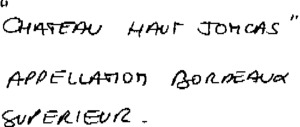 "CHATEAU HAUT JONCAS"
APPELLATION BORDEAUX
SUPERIEUR.